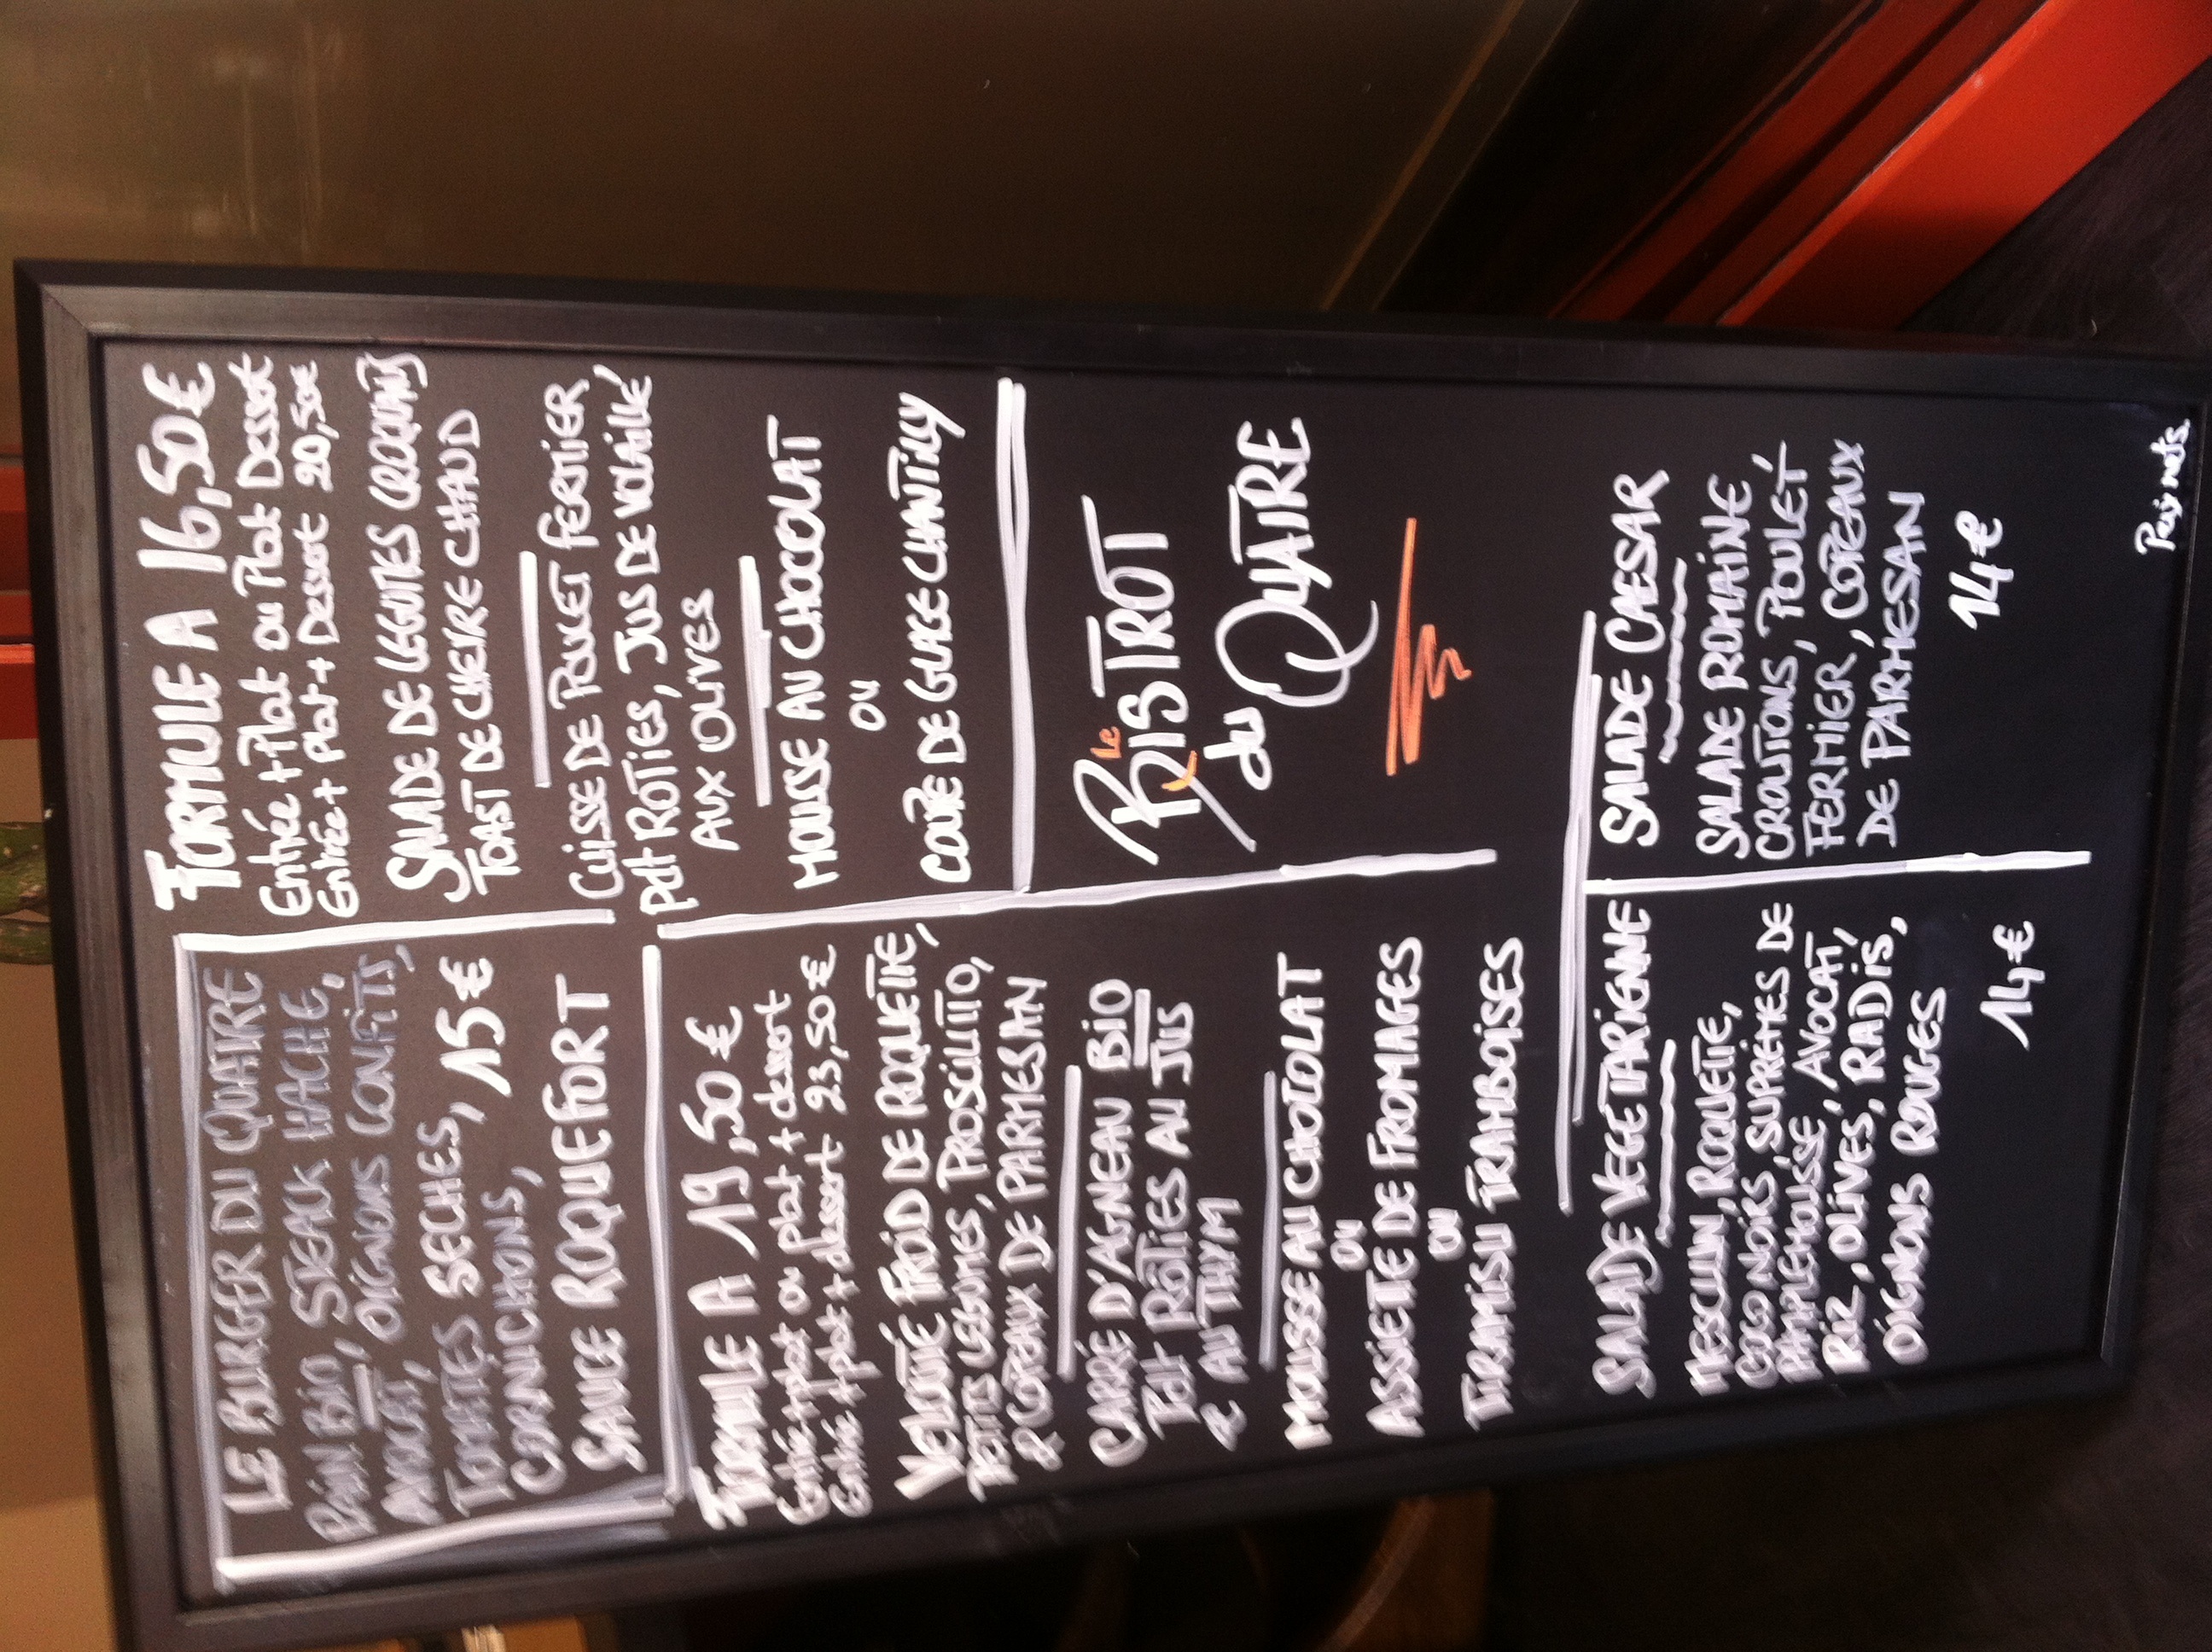 LE BURGER DU QUATRE
PAIN BIO, STEACK HACHE,
AVOCAT, OIGNONS CONFITS,
TOMATES SECHES, 15€
CORNICHONS,
SAUCE ROQUEFORT
FORMULE A 19,50€
Entrée + plat ou plat + dessert
Entrée + plat + dessert 23,50€
VELOUTÉ FROID DE ROQUETTE,
PETITS LEGUMES, PROSCIUTTO,
& COTEAUX DE PARMESAN
CARRÉ D'AGNEAU BIO
Pdt RÔTIES AU JUS
& AU THYM
MOUSSE AU CHOCOLAT
OU
ASSIETTE DE FROMAGES
OU
TIRAMISU FRAMBOISES
FORMULE A 16,50€
Entrée + Plat ou Plat Dessert
Entrée + Plat + Dessert 20,50€
SALADE DE LEGUMES CROQUANTS
TOAST DE CHEVRE CHAUD
CUISSE DE POULET FERMIER
pdt RÔTIES, JUS DE VOLAILLE
AUX OLIVES
MOUSSE AU CHOCOLAT
OU
COUPE DE GLACE CHANTILLY
le
BISTROT
du QUATRE
SALADE VEGETARIENNE
MESCLUN, ROQUETTE,
COCO NOIRS, SUPRÊMES DE
PAMPLEMOUSSE, AVOCAT,
RIZ, OLIVES, RADIS,
OIGNONS ROUGES
14€
SALADE CAESAR
SALADE ROMAINE
CROUTONS, POULET
FERMIER, COTEAUX
DE PARMESAN
14€
Prix nets.